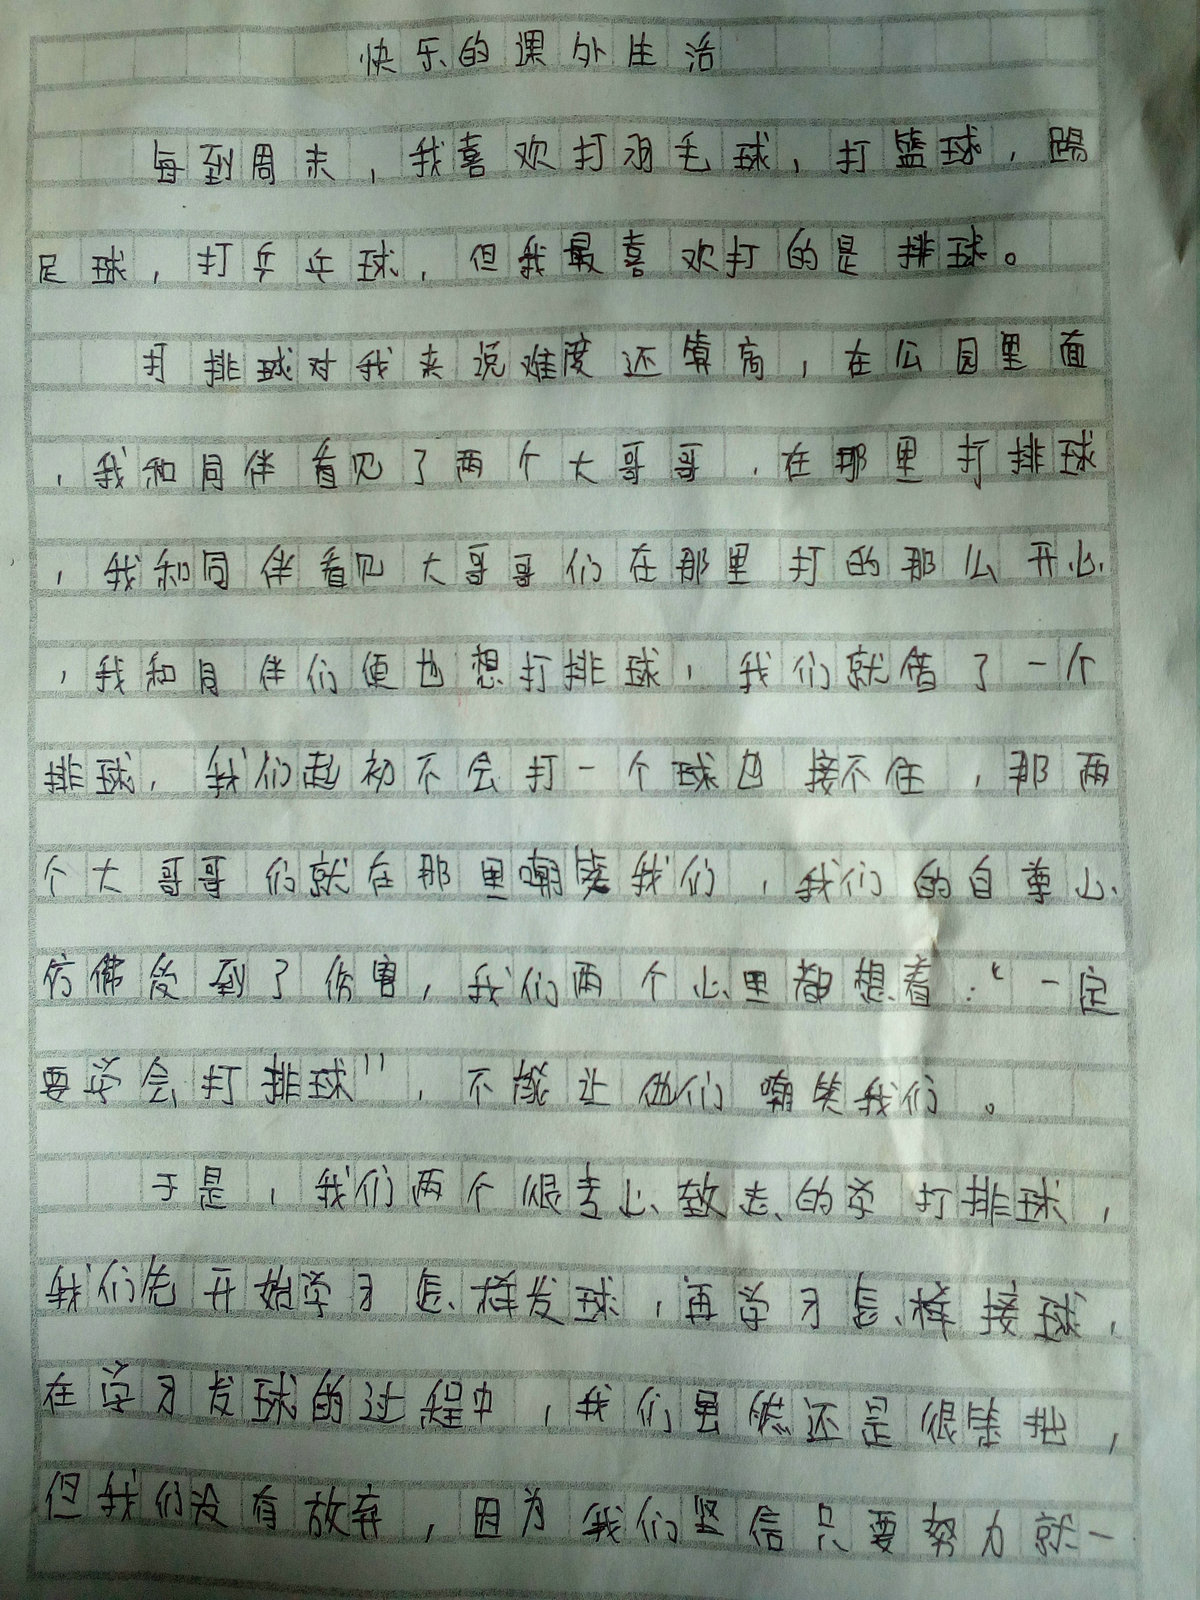 快乐的课外生活
每到周末，我喜欢打羽毛球，打篮球，踢
足球，打乒乓球，但我最喜欢打的是排球。
打排球对我来说难度还算高，在公园里面
，我和同伴看见了两个大哥哥，在那里打排球
，我和同伴看见大哥哥们在那里打的那么开心
，我和同伴们便也想打排球，我们就借了一个
排球，我们起初不会打一个球也接不住，那两
个大哥哥们就在那里嘲笑我们，我们的自尊心
仿佛受到了伤害，我们两个心里都想着：“一定
要学会打排球”，不能让他们嘲笑我们。
于是，我们两个很专心致志的学打排球，
我们先开始学习怎样发球，再学习怎样接球，
在学习发球的过程中，我们虽然还是很笨拙，
但我们没有放弃，因为我们坚信只要努力就一